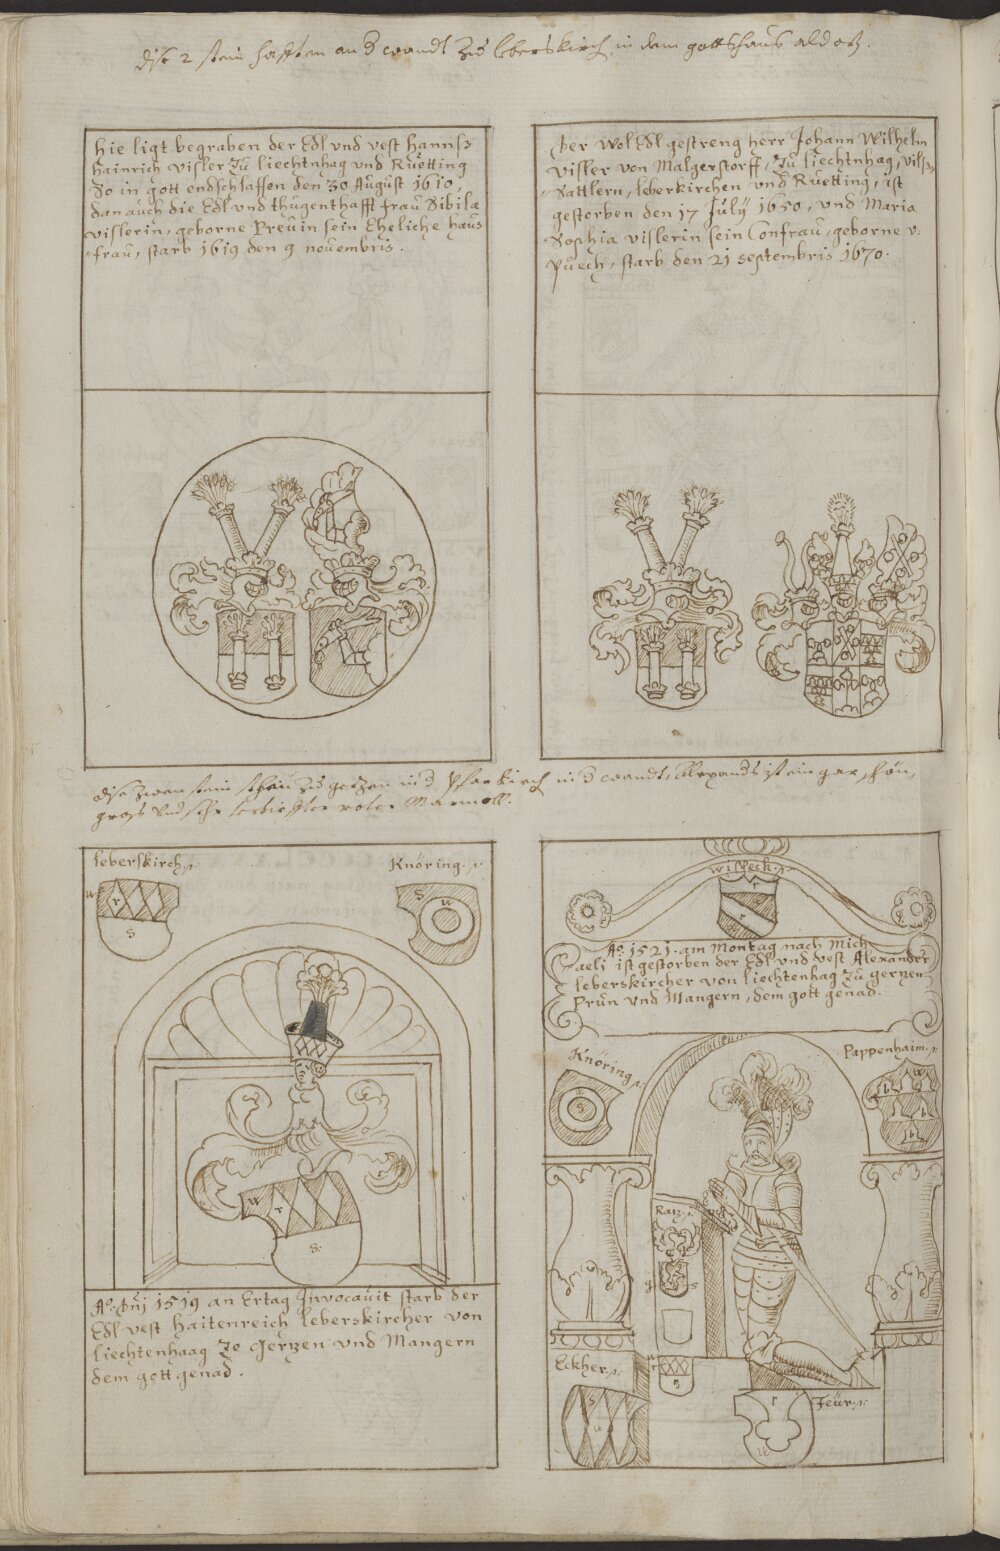 dise 2 stain hafften an d wandt zu leberskirch in dem gottshaus aldort.
hie ligt begraben der Edl vnd vest hannß
hainrich visler zu liechtnhag vnd Ruetting
So in gott endschlaffen den 30 August 1610,
dan auch die Edl vnd thugenthafft frau Sibila
vislerin, geborne Preuin sein Eheliche haus
-frau, starb 1619 den 9 novembris.
Der Wol Edl gestreng herr Johann Wilhelm
visler von Malgerstorff, zu liechtnhag, vilß-
-Sattlern, leberkirchen vnd Ruetting, ist
gestorben den 17 July 1650, vnd Maria
Sophia vislerin sein Confrau, geborne v:
Puech, starb den 21 septembris 1670.
dise zwen stain zu gerzen in d Pfarkirch in d wandt, Alexandr ist ein gar schön,
gross vnd sehr roter Marmoll.
leberskirch
Knöring
w
r
s
s
w
w
r
s
Ao. Dni 1519 an Ertag Invocavit starb der
Edl vest haitenreich leberskircher von
liechtenhaag Zo Gerzen vnd Mangern
dem gott genad.
wilpeck
r
r
Ao 1521. am Montag nach Mich
aeli ist gestorben der Edl vnd vest Alexander
leberskircher von liechtenhag zu gerzen
Prun vnd Mangern, dem gott genad.
Knöring
s
Pappenhaim
w
b
b
b
Raiz
s
s
Eckher
s
w
Feur
r
w